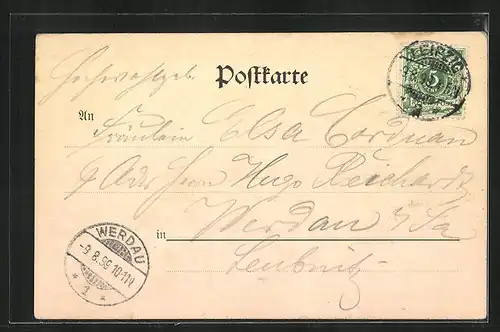 Hochwohlgeb.
Postkarte
LEIPZIG
5
An Fräulein Elsa Corduan
p Adr. Herrn Hugo Reichardt
in Werdau i/Sa
Leubnitz
WERDAU
-9 8.99 10-11V
* 1 *